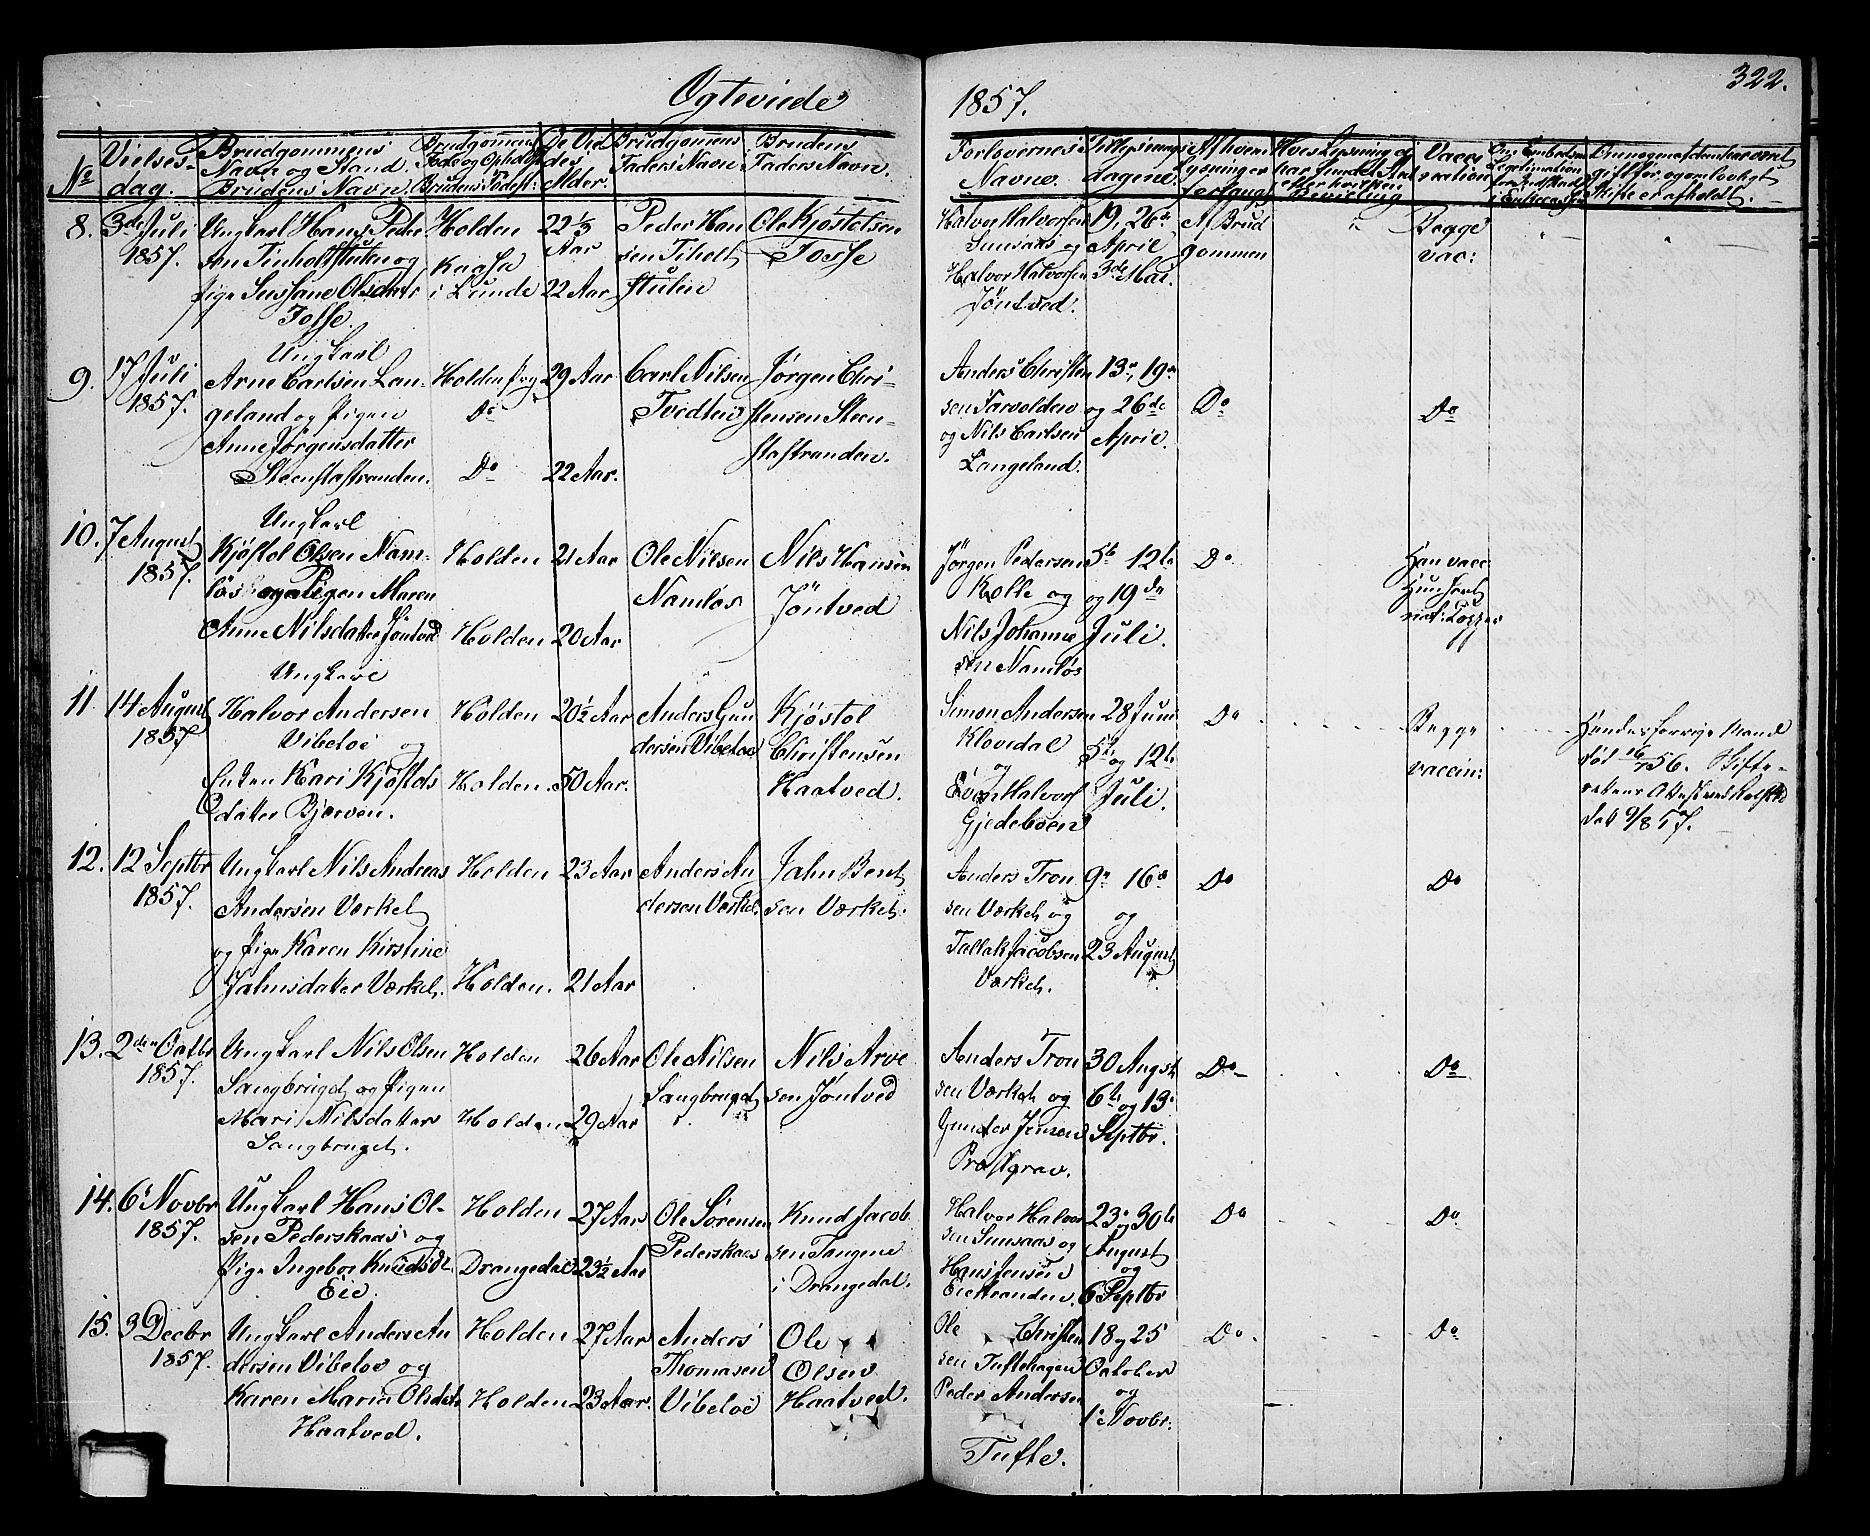 Ogteviede
1857.
322.
No
Vielses-
dag.
Brudgommens
Navn og Stand.
Brudens Navn.
Brudgommens
Føde og Opholdsst:
Brudens Fødest:
De Vied
des
Alder.
Brudgommens
Faders Navn
Brudens
Faders Navn.
Forlovernes
Navne.
Tillysnings
dagene.
Af hvem
Lysning er
forlangt
Hves Lysning ei
har fundet Sted
efter hvilken
Bevilling
Vacci
nation
8. 3de Juli
1857.
Ungkarl Hans Peder
sen Tinholtstulen og
Pige Sussane Olsdatter
Tosse.
Holden
Kaasa
i Lunde
22 1/3
Aar
22 Aar
Peder Han
sen Tiholt
stulen
Ole Kjøstolsen
Tosse
Halvor Halvorsen
Sunsaas og
Halvor Halvorsen
Jøntved.
19, 26de
April
3de Mai.
Af Brud
gommen
Begge
vac:
9. 17 Juli
1857.
Ungkarl
Arne Carlsen Lan-
geland og Pigen
Anne Jørgensdatter
Steenstastranden.
Holden
Do
Do
29 Aar
22 Aar.
Carl Nilsen
Tvedten
Jørgen Chri-
stensen Steen-
stastranden.
Anders Christen
sen Tarvolden
og Nils Carlsen
Langeland.
13de, 19de
og 26de
April.
Do
Do
10. 7 August
1857.
Ungkarl
Kjøstol Olsen Nam-
løs og Pigen Maren
Anne Nilsdatter Jøntved
Holden
Holden
21 Aar
20 Aar
Ole Nilsen
Namløs
Nils Hansen
Jøntved
Jørgen Pedersen
Kolle og
Nils Johanne
sen Namløs
5te 12te
og 19de
Juli.
Do
Han vacc
Hun havt
nat: Kopper
11. 14 August
1857.
Ungkarl
Halvor Andersen
Vibetoe og
Enken Kari Kjøstols
datter Bjerven.
Holden
Holden.
20 1/2 Aar
50 Aar.
Anders Gun
dersen Vibetoe
Kjøstol
Christensen
Haatved.
Simon Andersen
Klovdal
og
Even Halvors
Gjedeboen
28 Juni
5te og 12te
Juli.
Do
Begge
vaccin:
Hendes forrige Mand
død 16/7 56. Skifte-
rettens Attest ved
dat 9/8 57.
12. 12 Septbr
1857.
Ungkarl Nils Andreas
Andersen Værket
og Pige Karen Kirstine
Jahnsdatter Værket.
Holden
Holden.
23 Aar
21 Aar
Anders An
dersen Værket.
Jahn Bent
sen Værket.
Anders Tron
sen Værket og
Tallak Jacobsen
Værket.
9de 16de
og
23 August
Do
Do
13. 2den Octbr
1857.
Ungkarl Nils Olsen
Saugbruget og Pigen
Mari Nilsdatter
Saugbruget.
Holden
Holden
26 Aar
29 Aar
Ole Nilsen
Saugbruget
Nils Arve
sen Jøntved
Anders Tron
sen Værket og
Gunder Jensen
Præstgrav.
30 Augst
6te og 13de
Septbr.
Do
Do
14. 6te Novbr
1857.
Ungkarl Hans Ol-
sen Pederskaas og
Pige Ingebor Knudsdt.
Eie.
Holden
Drangedal
27 Aar
23 1/2 Aar
Ole Sørensen
Pederskaas
Knud Jacob
sen Tangene
i Drangedal.
Halvor Halvor
sen Sunsaas og
Hans Jensen
Eiestranden.
23de og 30te
August
og
6 Septbr
Do
Do
15. 3 Decbr
1857.
Ungkarl Anders An
dersen Vibetoe og
Karen Maria Olsdatter
Haatved.
Holden
Holden
27 Aar
23 Aar.
Anders
Thomasen
Vibetoe
Ole
Olsen
Haatved.
Ole Christen
sen Tuftehagen
Peder Andersen
Tufte.
18 og 25
October
og
1ste Novbr.
Do.
Do